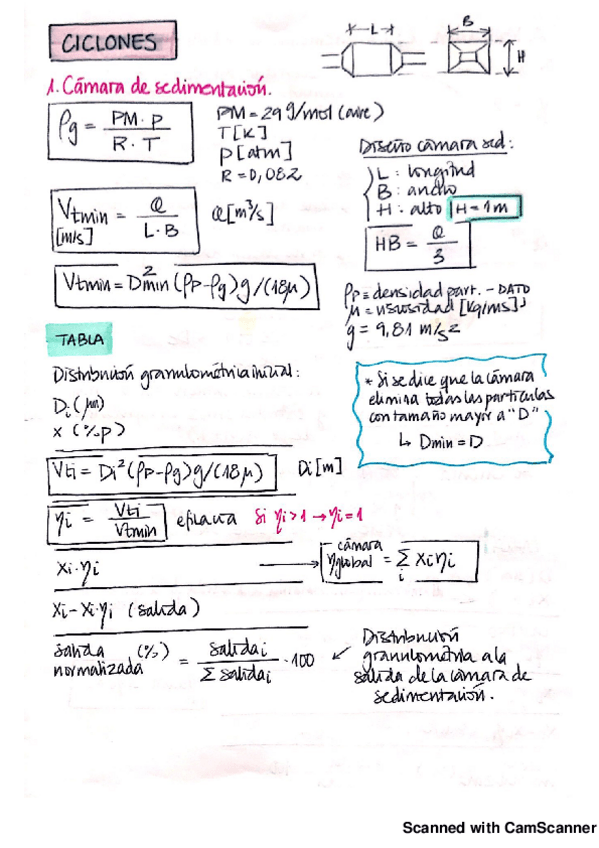 CICLONES
L
B
H
1. Cámara de sedimentación.
ρg = PM · P / R · T
PM = 29 g/mol (aire)
T [K]
P [atm]
R = 0,082
Diseño cámara sed:
L : longitud
B : ancho
H : alto H = 1m
HB = Q / 3
Vtmin = Q / L · B
[m/s]
Q [m³/s]
Vtmin = D²min (ρp - ρg) g / (18μ)
ρp = densidad part. - DATO
μ = viscosidad [kg/ms]
g = 9,81 m/s2
TABLA
Distribución granulométrica inicial:
Di (μm)
x (%p)
* Si se dice que la cámara
elimina todas las partículas
con tamaño mayor a "D"
↳ Dmin = D
Vti = Di² (ρp - ρg) g / (18μ)
Di [m]
ηi = Vti / Vtmin
eficacia
Si ηi > 1 → ηi = 1
xi · ηi
→ cámara
ηglobal = Σi xi ηi
xi - xi · ηi (salida)
salida (%) normalizada = salidai / Σ salidai · 100
↙ Distribución
granulometría a la
salida de la cámara de
sedimentación.
Scanned with CamScanner